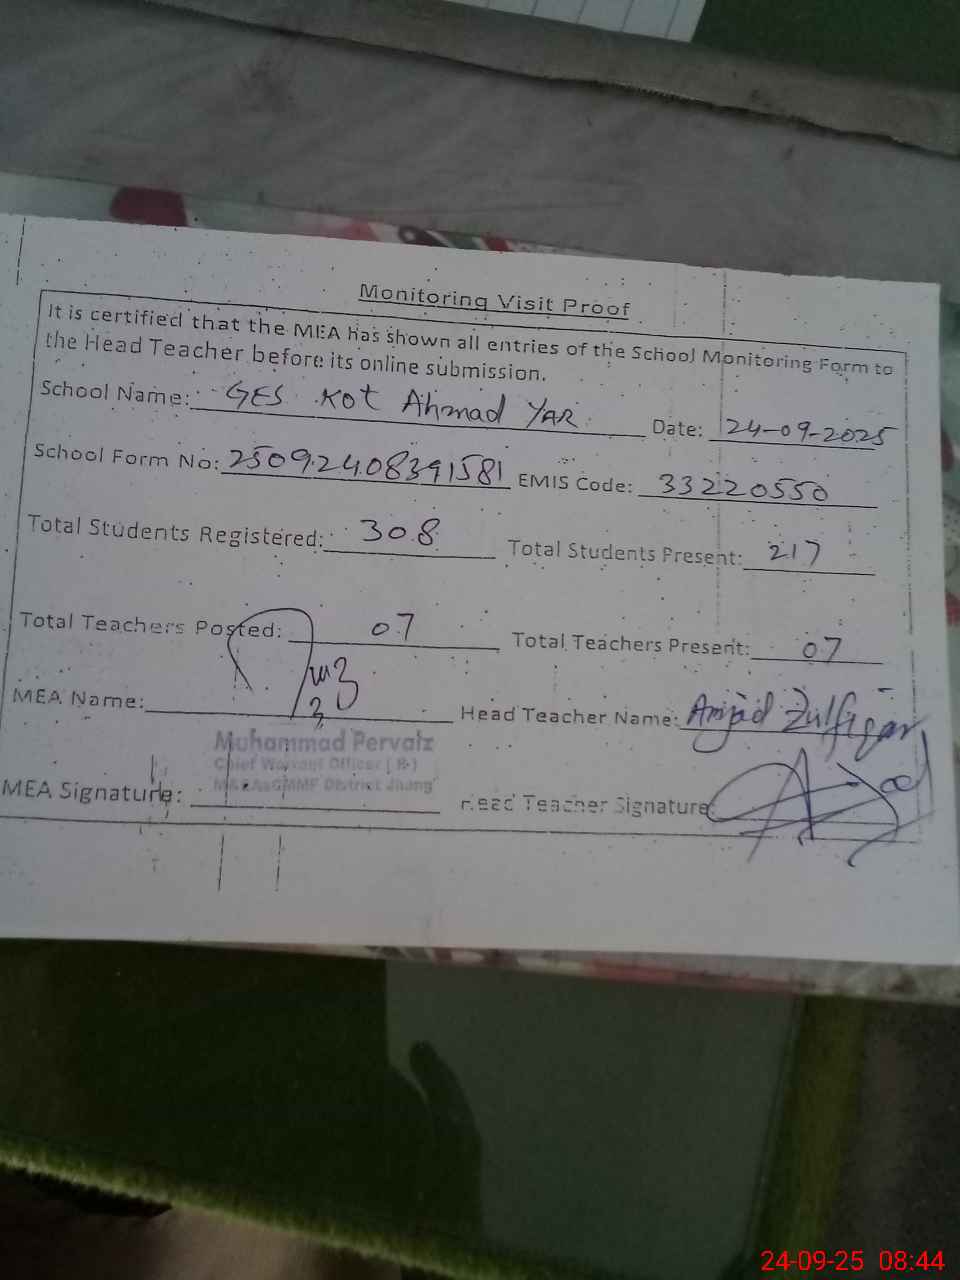 Monitoring Visit Proof
It is certified that the MEA has shown all entries of the School Monitoring Form to
the Head Teacher before its online submission.
School Name: GES Kot Ahmad YAR Date: 24-09-2025
School Form No: 25092408391581 EMIS Code: 33220550
Total Students Registered: 308 Total Students Present: 217
Total Teachers Posted: 07 Total Teachers Present: 07
MEA Name: Head Teacher Name: Amjad Zulfiqar
Muhammad Pervaiz
Chief Warrant Officer (R)
District Jhang
MEA Signature: Head Teacher Signature:
24-09-25 08:44